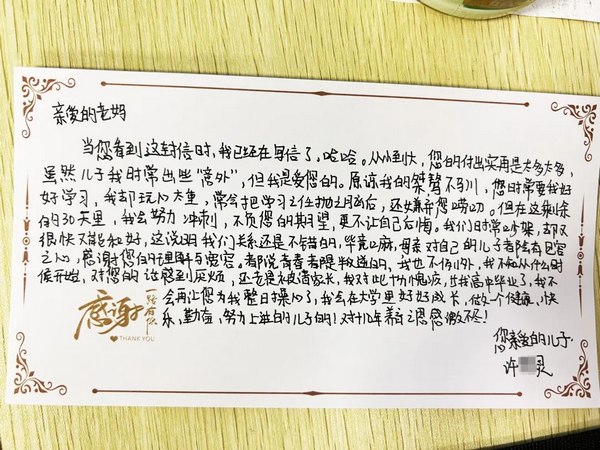 亲爱的老妈
当您看到这封信时,我已经在写信了,哈哈。从小到大,您的付出实再是太多太多,
虽然儿子我时常出些“意外”,但我是爱您的。原谅我的桀骜不驯,您时常要我好
好学习,我却玩心太重,常会把学习之任抛之脑后,还嫌弃您唠叨。但在这剩余
的30天里,我会努力冲刺,不负您的期望,更不让自己后悔。我们时常吵架,却又
很快又能和好,这说明我们关系还是不错的,毕竟嘛,母亲对自己的儿子都会有包容
之心,感谢您的理解与宽容,都说青春都是叛逆的,我也不例外,我不知从什么时
候开始,对您的话感到厌烦,还老是被请家长,对此十分愧疚,此我高中毕业了,我不
会再让您为我整日操心了,我会在大学里好好成长,做一个健康、快
乐、勤奋、努力上进的儿子的!对十八年养育之恩感激不尽!
感谢
一路有你
THANK YOU
您亲爱的儿子
许 灵